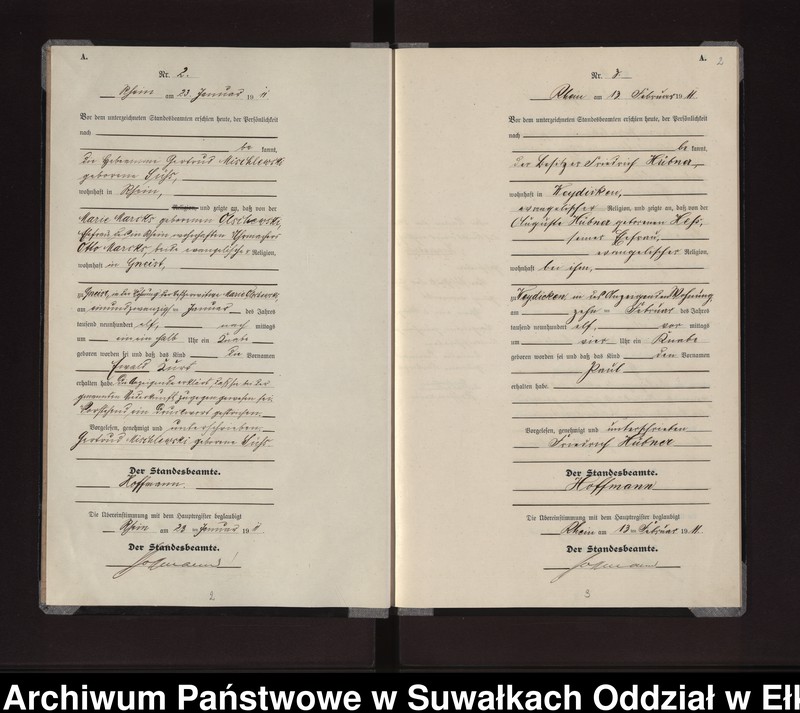 A.
Nr. 2.
Rhein am 23 Januar 19 11
Vor dem unterzeichneten Standesbeamten erschien heute, der Persönlichkeit
nach
be kannt,
die Hebeamme Gertrud Mischlewski
geborene
wohnhaft in Rhein,
Religion, und zeigte an, daß von der
Marie Marcks geborenen
Ehefrau des in Rhein wohnhaften
Otto Marcks, beide evangelischer Religion,
wohnhaft in Gneist,
zu Gneist, in der Wohnung der
am einundzwanzigsten Januar des Jahres
tausend neunhundert elf, nach mittags
um ein ein halb Uhr ein Knabe
geboren worden sei und daß das Kind die Vornamen
Ewald Kurt
erhalten habe. Die Anzeigende erklärt, daß sie bei der
genannten Niederkunft zugegen gewesen sei.
Vorstehend ein Druckwort gestrichen.
Vorgelesen, genehmigt und unterschrieben
Gertrud Mischlewski geborene
Der Standesbeamte.
Hoffmann.
Die Übereinstimmung mit dem Hauptregister beglaubigt
Rhein am 23 Januar 19 11
Der Standesbeamte.
Hoffmann
2
A.
2
Nr. 3
Rhein am 13 Februar 19 11.
Vor dem unterzeichneten Standesbeamten erschien heute, der Persönlichkeit
nach
be kannt,
der Besitzer Friedrich Hübner,
wohnhaft in Weydicken,
evangelischer Religion, und zeigte an, daß von der
Auguste Hübner geborenen
seiner Ehefrau,
evangelischer Religion,
wohnhaft bei ihm,
zu Weydicken, in des Anzeigenden Wohnung
am zehn Februar des Jahres
tausend neunhundert elf, vor mittags
um vier Uhr ein Knabe
geboren worden sei und daß das Kind den Vornamen
Paul
erhalten habe.
Vorgelesen, genehmigt und unterschrieben
Friedrich Hübner
Der Standesbeamte.
Hoffmann
Die Übereinstimmung mit dem Hauptregister beglaubigt
Rhein am 13 Februar 19 11.
Der Standesbeamte.
Hoffmann
3
Archiwum Państwowe w Suwałkach Oddział w Ełk